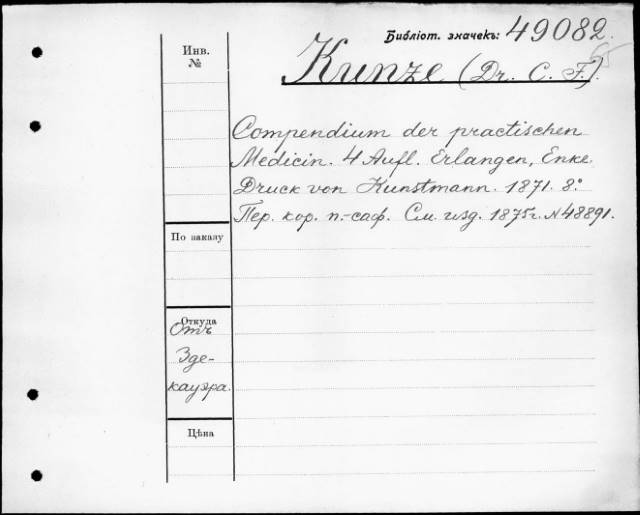 Библіот. значекъ: 49082.
Инв.
№
Kunze (Dr. C. F.).
Compendium der practischen
Medicin. 4 Aufl. Erlangen, Enke.
Druck von Kunstmann. 1871. 8.°
Пер. кор. п.-саф. См. изд. 1875г. № 48891.
По заказу
Откуда
Отъ
Зде-
кауэра.
Цѣна